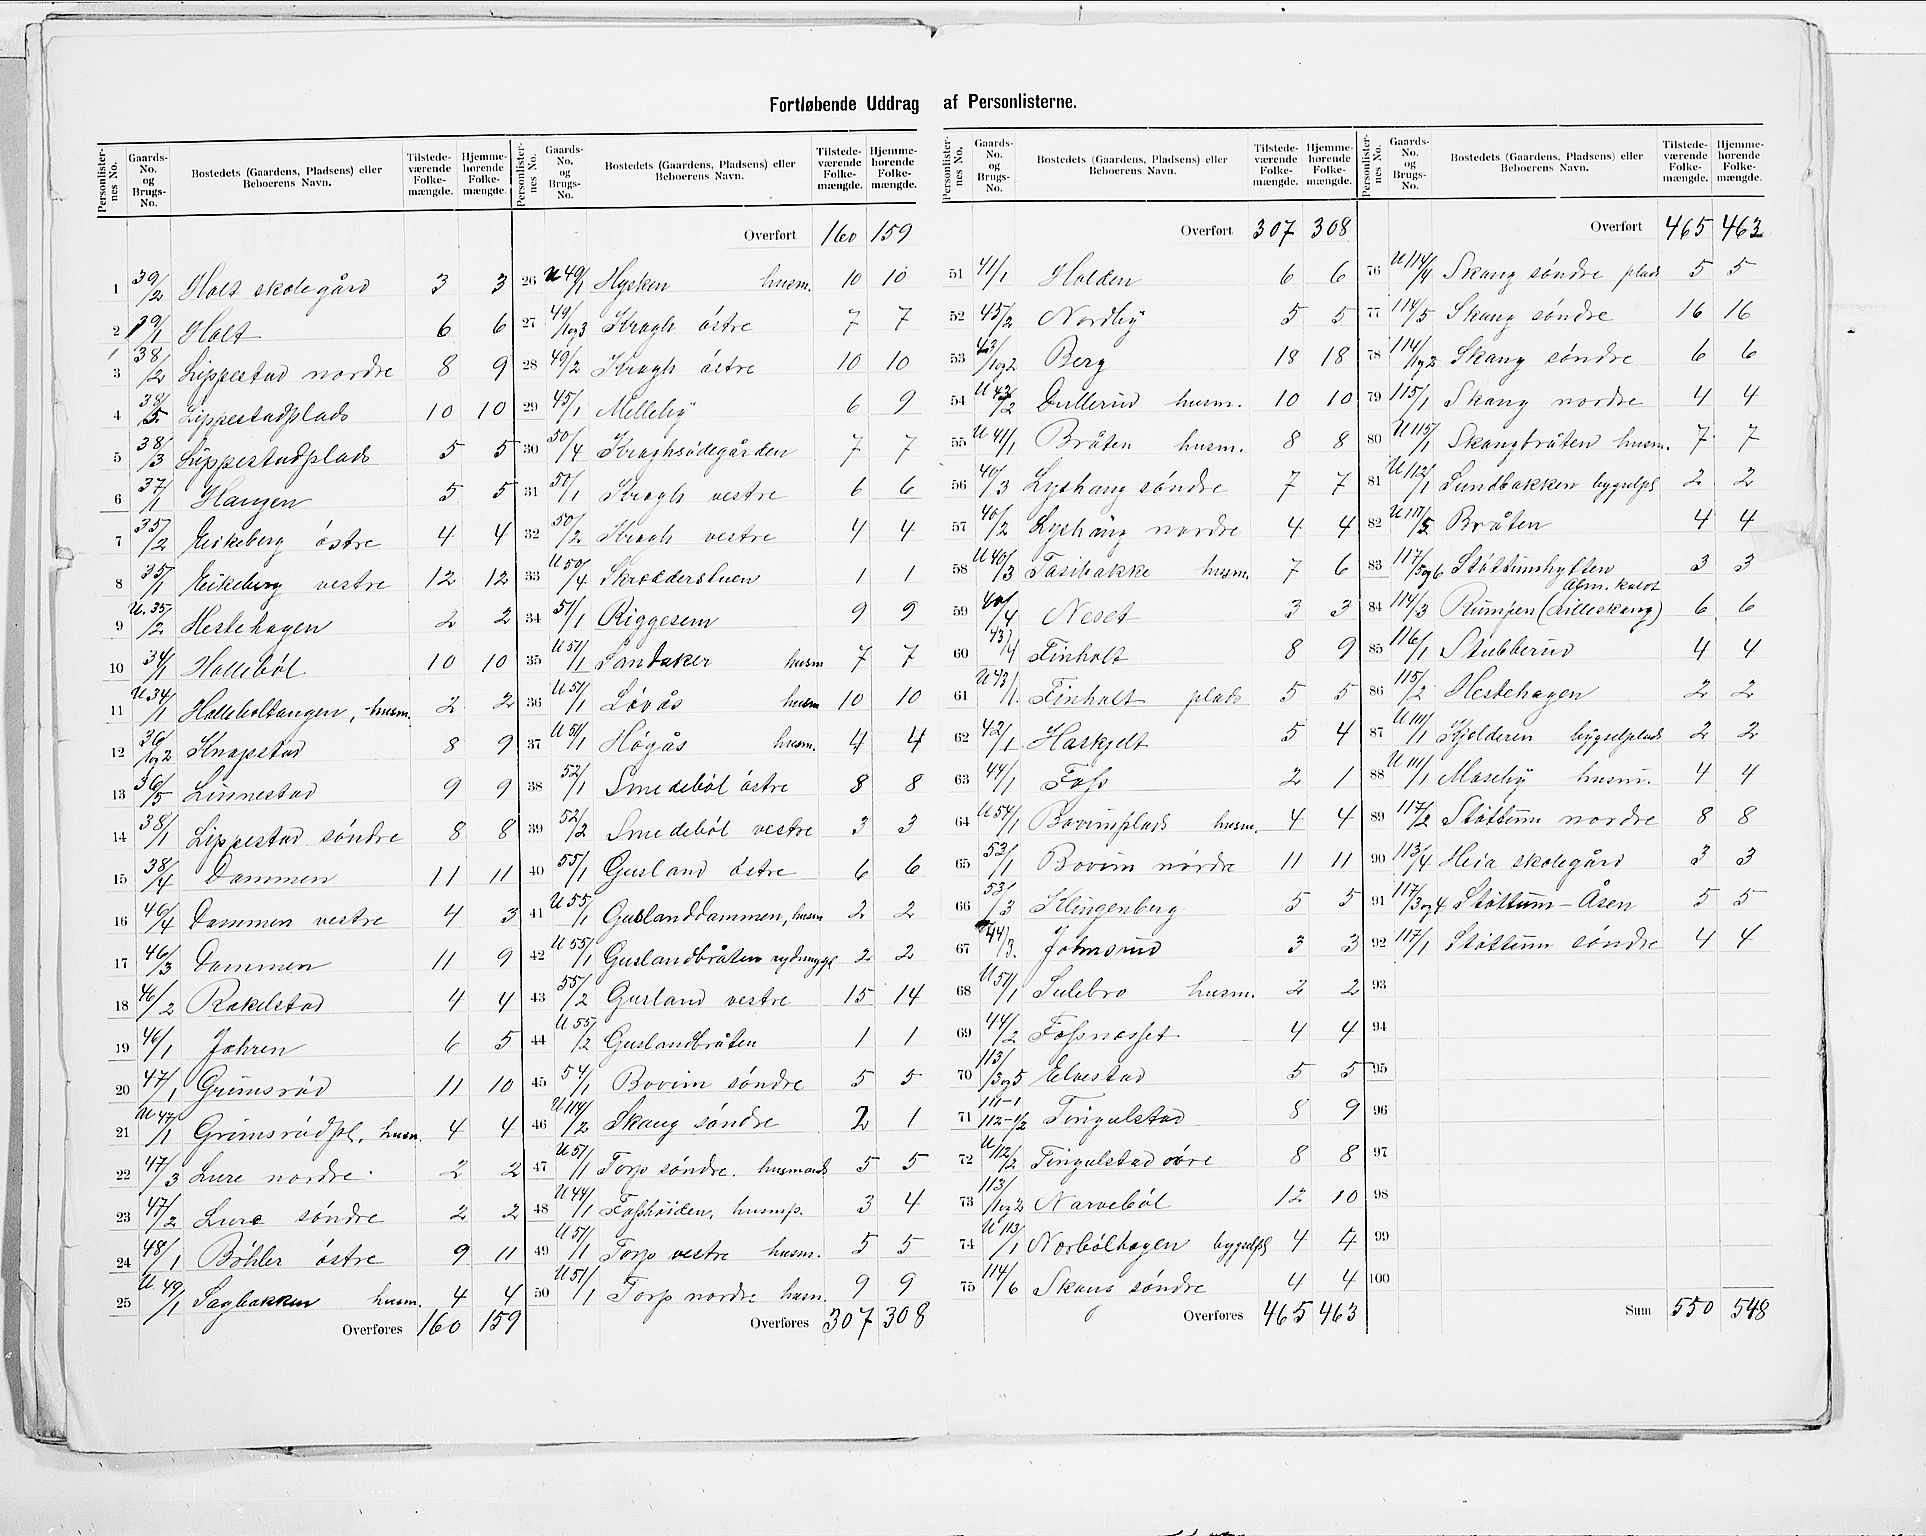 Fortløbende Uddrag af Personlisterne.
Personlister-nes No. Gaards-No. og Brugs-No. Bostedets (Gaardens, Pladsens) eller Beboerens Navn. Tilstede-værende Folke-mængde. Hjemme-hørende Folke-mængde.
1 39/2 Holt skolegård 3 3
2 39/1 Holt 6 6
3 38/2 Lippestad nordre 8 9
4 38/5 Lippestadplads 10 10
5 38/3 Lippestadplads 5 5
6 37/1 Haugen 5 5
7 35/2 Eikeberg østre 4 4
8 35/1 Eikeberg vestre 12 12
9 U. 35/2 Hestehagen 2 2
10 34/1 Holleböl 10 10
11 U 34/1 Holleboltangen, husm. 2 2
12 36/1og2 Knapstad 8 9
13 36/5 Linnestad 9 9
14 38/1 Lippestad söndre 8 8
15 38/4 Dammen 11 11
16 46/4 Dammen vestre 4 3
17 46/3 Dammen 11 9
18 46/2 Rakelstad 4 4
19 46/1 Jahren 6 5
20 47/1 Grimsröd 11 10
21 U 47/1 Grimsrödpl. husm. 4 4
22 47/3 Lure nordre 2 2
23 47/2 Lure söndre 2 2
24 48/1 Böhler östre 9 11
25 U 49/1 Sagbakken husm. 4 4
Overføres 160 159
Personlister-nes No. Gaards-No. og Brugs-No. Bostedets (Gaardens, Pladsens) eller Beboerens Navn. Tilstede-værende Folke-mængde. Hjemme-hørende Folke-mængde.
Overført 160 159
26 U 49/1 Hysken husm. 10 10
27 49/1og3 Kragh östre 7 7
28 49/2 Kragh östre 10 10
29 45/1 Melleby 6 9
30 50/4 Kraghsödegården 7 7
31 50/1 Kragh vestre 6 6
32 50/2 Kragh vestre 4 4
33 U 50/4 Skrædderstuen 1 1
34 51/1 Riggesem 9 9
35 U 51/1 Sandaker husm 7 7
36 U 51/1 Lövås husm 10 10
37 U 51/1 Högås husm. 4 4
38 52/1 Smedeböl östre 8 8
39 52/2 Smedeböl vestre 3 3
40 55/1 Gusland östre 6 6
41 U 55/1 Guslanddammen, husm 2 2
42 U 55/1 Guslandbråten 2 2
43 55/2 Gusland vestre 15 14
44 U 55/2 Guslandbråten 1 1
45 54/1 Bovim söndre 5 5
46 U 114/2 Skaug söndre 2 1
47 U 51/1 Torp söndre. husmands 5 5
48 U 44/1 Fosshöiden, husmp. 3 4
49 U 51/1 Torp vestre husm. 5 5
50 U 51/1 Torp nordre husm. 9 9
Overføres 307 308
Personlister-nes No. Gaards-No. og Brugs-No. Bostedets (Gaardens, Pladsens) eller Beboerens Navn. Tilstede-værende Folke-mængde. Hjemme-hørende Folke-mængde.
Overført 307 308
51 41/1 Holden 6 6
52 45/2 Nordby 5 5
53 43/1og2 Berg 18 18
54 U 43/2 Dullerud husm. 10 10
55 U 41/1 Bråten husm. 8 8
56 40/3 Lyshaug söndre 7 7
57 40/2 Lyshaug nordre 4 4
58 U 40/3 Tasibakke husm. 7 6
59 40/4 Neset 3 3
60 43/1 Finholt 8 9
61 U 43/1 Finholt plads 5 5
62 42/1 Haskjelt 5 4
63 44/1 Foss 2 1
64 U 54/1 Bovimplads husm. 4 4
65 53/1 Bovim nordre 11 11
66 53/3 Klingenberg 5 5
67 44/3. Johnsrud 3 3
68 U 51/1 Sulebro husm. 2 2
69 44/2 Fossnesset 4 4
70 113/3og5 Elvestad 5 5
71 111-1 112-1/2 Tingulstad 8 9
72 U 112/2 Tingulstad övre 8 8
73 113/1og2 Narveböl 12 10
74 U 113/1 Norbölhagen bygselpl 4 4
75 114/6 Skaug söndre 4 4
Overføres 465 463
Personlister-nes No. Gaards-No. og Brugs-No. Bostedets (Gaardens, Pladsens) eller Beboerens Navn. Tilstede-værende Folke-mængde. Hjemme-hørende Folke-mængde.
Overført 465 463
76 U 114/4 Skaug söndre plads 5 5
77 114/5 Skaug söndre 16 16
78 114/1og2 Skaug söndre 6 6
79 115/1 Skaug nordre 4 4
80 U 115/1 Skaugbråten husm. 7 7
81 U 112/1 Sundbakken bygselpl 2 2
82 U 117/5 Bråten 4 4
83 117/5og6 Stöttumhytten 3 3
84 114/3 Rumpen (alm. kaldt Lilleskaug) 6 6
85 116/1 Stubberud 4 4
86 115/2 Hestehagen 2 2
87 U 111/1 Kjolderen bygselplads 2 2
88 U 111/1 Moseby husm. 4 4
89 117/2 Stöttum nordre 8 8
90 113/4 Heia skolegård 3 3
91 117/3og4 Stöttum-Åsen 5 5
92 117/1 Stöttum söndre 4 4
93
94
95
96
97
98
99
100
Sum 550 548